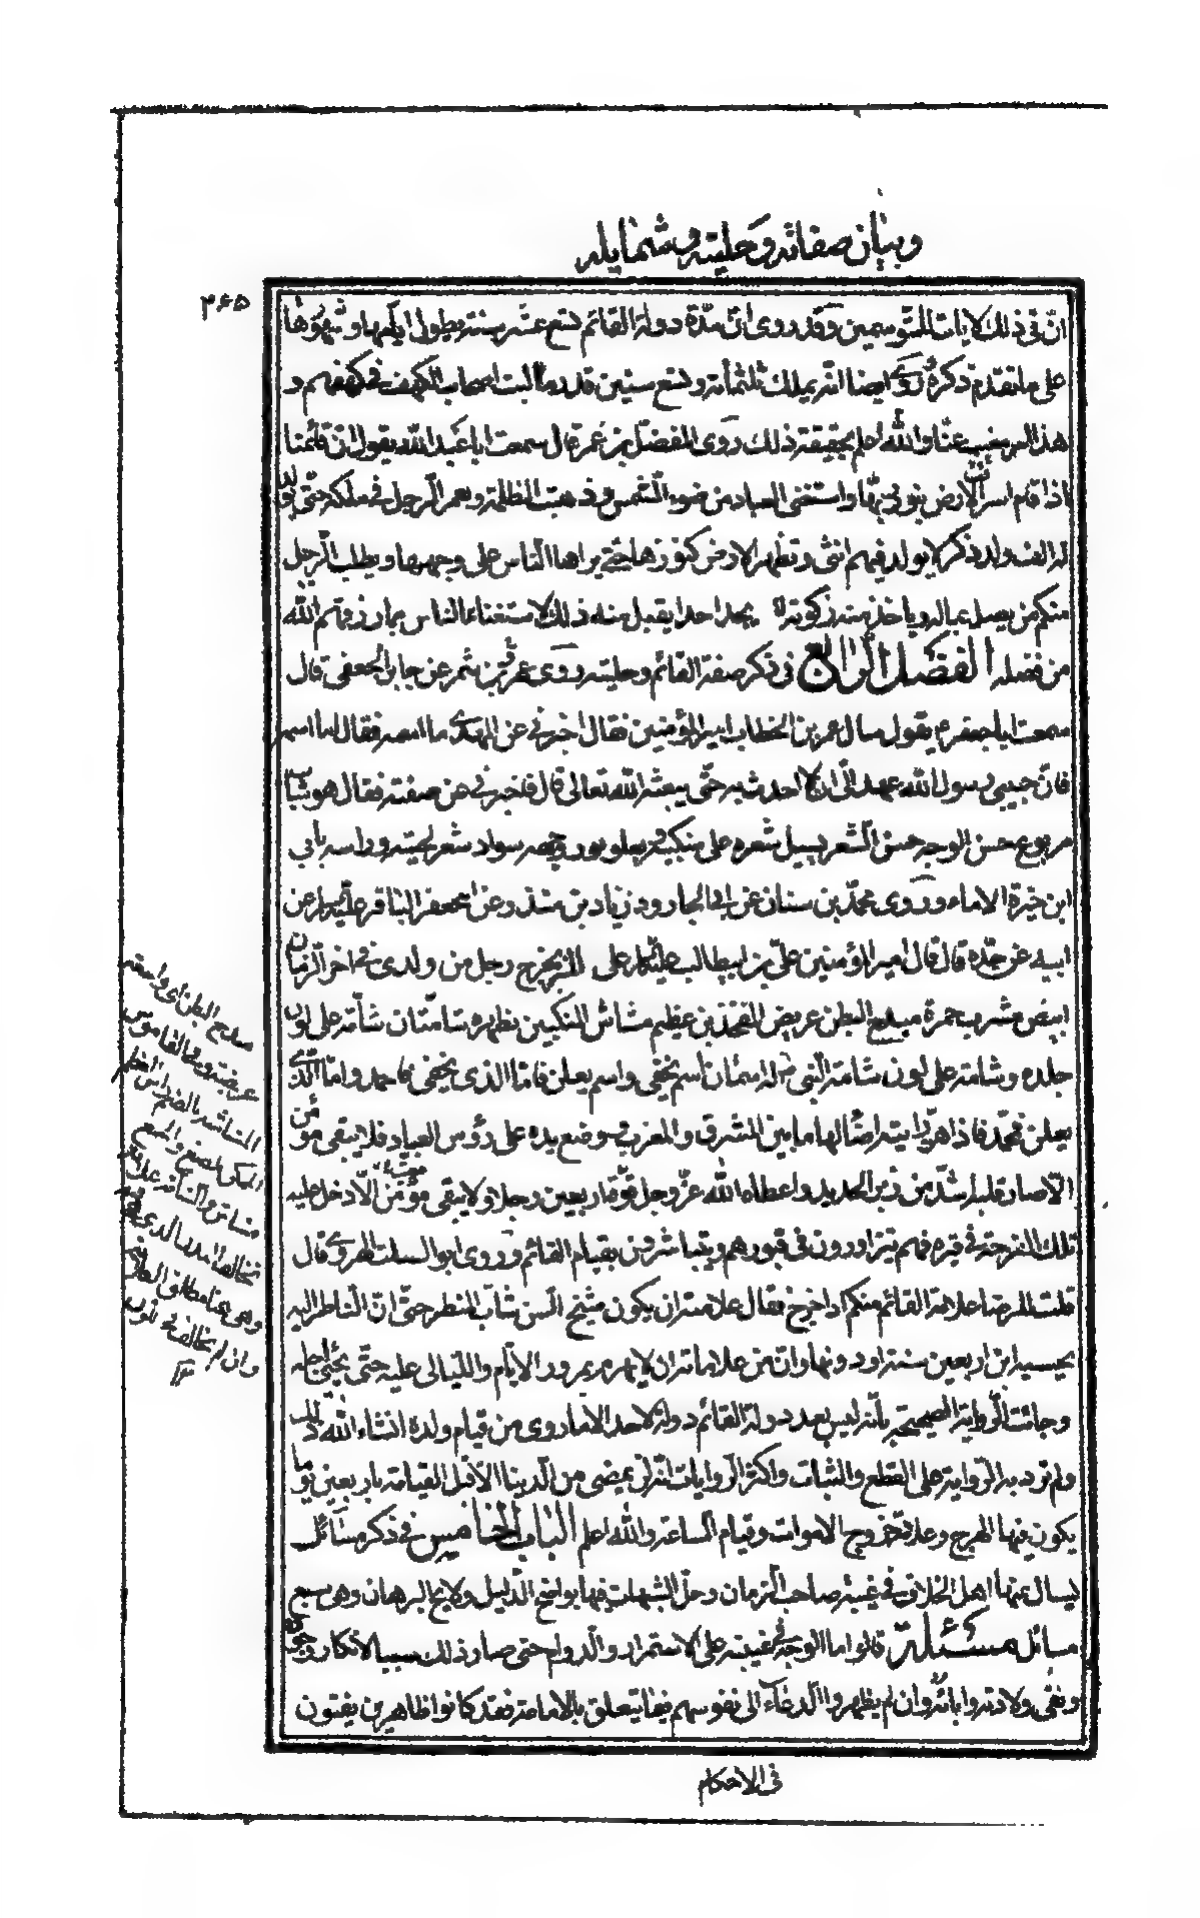 وبيان صفاته وحليته وشمايله
۳۶۵
انّ فى ذلك لايات للمتوسمين وقد روى انّ مدّة دولة القائم تسع عشر سنة يطول ايامها وشهورها
على ما تقدم ذكره وروى ايضا انّه يملك ثلثمأة وتسع سنين قدر ما لبث اصحاب الكهف فى كهفهم و
هذا امر مغيب عنّا والله اعلم بحقيقة ذلك روى المفضّل بن عمر قال سمعت ابا عبد الله يقول انّ قائمنا
اذا قام اشرقت الارض بنور ربّها واستغنى العباد من ضوء الشّمس وذهبت الظلمة ويعمر الرّجل فى ملكه حتّى يولد
له الف ولد ذكر لا يولد فيهم انثى وتظهر الارض كنوزها حتى يراها النّاس على وجهها ويطلب الرّجل
منكم من يصل بماله وياخذ منه زكوته لا يجد احدا يقبل منه ذلك لاستغناء الناس بما رزقهم الله
من فضله الفصل الرّابع فى ذكر صفة القائم وحليته وروى عمرو بن شمر عن جابر الجعفى قال
سمعت ابا جعفر ع يقول سال عمر بن الخطاب امير المؤمنين فقال اخبرنى عن المهدى ما اسمه فقال اما اسمه
فانّ حبيبى رسول الله عهد الىّ ان لا احدث به حتّى يبعثه الله تعالى قال فاخبرنى عن صفته فقال هو شاب
مربوع حسن الوجه حسن الشّعر يسيل شعره على منكبيه ويعلو نور وجهه سواد شعر لحيته وراسه بابى
ابن خيرة الاماء وروى محمّد بن سنان عن ابى الجارود زياد بن منذر عن ابى جعفر الباقر عليه السلام عن
ابيه عن جدّه قال قال امير المؤمنين علىّ بن ابيطالب عليه السلام على المنبر يخرج رجل من ولدى فى اخر الزّمان
ابيض مشرب حمرة مبدح البطن عريض الفخذين عظيم مشاش المنكبين بظهره شامّتان شامّة على لون
جلده وشامة على لون شامة النّبى ص له اسمان اسم يخفى واسم يعلن فامّا الذى يخفى فاحمد وامّا الّذى
يعلن فمحمّد فاذا هزّ رايته اضاء لها ما بين المشرق والمغرب ووضع يده على رؤس العباد فلا يبقى مؤمن
الّا صار قلبه اشدّ من زبر الحديد واعطاه الله عزّ وجل قوّة اربعين رجلا ولا يبقى مؤمن ميّت الّا دخل عليه
تلك الفرحة فى قبره فهم يتزاورون فى قبورهم ويتباشرون بقيام القائم وروى ابو السلت الهروى قال
قلت للرضا علامة القائم منكم اذا خرج فقال علامته ان يكون شيخ السن شابّ المنظر حتّى انّ النّاظر اليه
يحسبه ابن اربعين سنة او دونها وانّ من علاماته ان لا يهرم بمرور الايّام واللّيالى عليه حتّى يأتى اجله
وجائت الرّواية الصحيحة بانّه ليس بعد دولة القائم دولة لاحد الا ما روى من قيام ولده انشاء الله ذلك
ولم ترد به الرّواية على القطع والثبات واكثر الرّوايات انّه لن يمضى من الدّينا الّا قبل القيامة باربعين يوما
يكون فيها الهرج وعلامة خروج الاموات وقيام السّاعة والله اعلم الباب الخامس فى ذكر مسائل
يسال عنها اهل الخلاف فى غيبة صاحب الزّمان وحلّ الشبهات فيها بواضح الدّليل ولايح البرهان وهى سبع
مسائل مسئلة قالوا ما الوجه فى غيبته على الاستمرار والّدوام حتى صار ذلك سببا لانكار وجوده
ونفى ولادته واباؤه وان لم يظهروا الدعاء الى نفوسهم فيما يتعلق بالامامة فقد كانوا ظاهرين يفتون
فى الاحكام
مبدح البطن اى واسعه
عريضه وفى القاموس